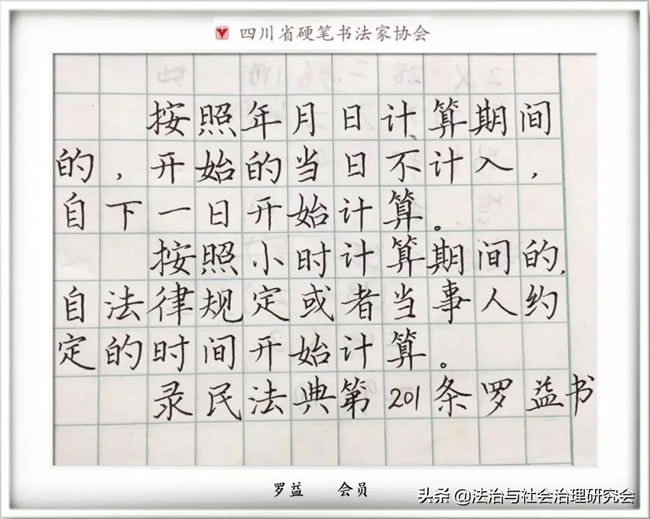 四川省硬笔书法家协会
按照年月日计算期间
的,开始的当日不计入,
自下一日开始计算。
按照小时计算期间的,
自法律规定或者当事人约
定的时间开始计算。
录民法典第201条罗益书
罗益 会员
头条@法治与社会治理研究会